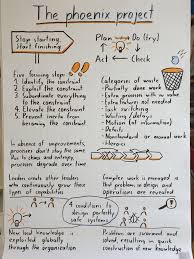 The phoenix project
Stop starting,
start finishing
Plan
Do (try)
Act
Check
Five focusing steps:
1. Identify the constraint
2. Exploit the constraint
3. Subordinate everything
to the constraint
4. Elevate the constraint
5. Prevent inertia from
becoming the constraint
Categories of waste
- Partially done work
- Extra process with no value
- Extra features not needed
- Task switching
- Waiting / delays
- Motion (of information)
- Defects
- Nonstandard or manual work
- Heroics
In absence of improvements,
processes don't stay the same
Due to chaos and entropy, time
processes degrade over
Leaders create other leaders
who continuously grow these
types of capabilities
Complex work is managed so
that problems in design and
operations are revealed
4 conditions to
design perfectly
safe systems
New local knowledge is
exploited globally
throughout the organization
Problems are swarmed and
solved, resulting in quick
construction of new knowledge